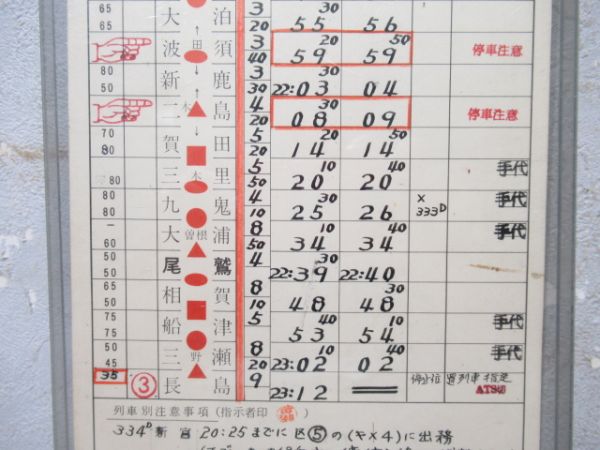 65 65 大 泊 3 20 55 56
波 田 須 3 40 59 20 59 50 停車注意
80 50 新 鹿 3 30 22:03 30 04
二 木 島 4 20 08 30 09 停車注意
70 80 賀 田 5 20 14 20 14 50
80 三 木 里 5 50 20 10 20 40 手代
80 80 九 鬼 4 10 25 30 26 × 333D 手代
- 60 大 曽根 浦 8 50 34 10 34 40 手代
65 50 尾 鷲 4 22:39 30 22:40
50 55 相 賀 8 10 48 48 30
75 75 船 津 5 53 40 54 10 手代
50 45 三 野 瀬 8 20 23:02 10 02 40 手代
35 ③ 長 島 9 23:12 停止位置列車指定 ATS
列車別注意事項(指示者印 )
334D 新宮 20:25までに区⑤の(キ×4)に出務